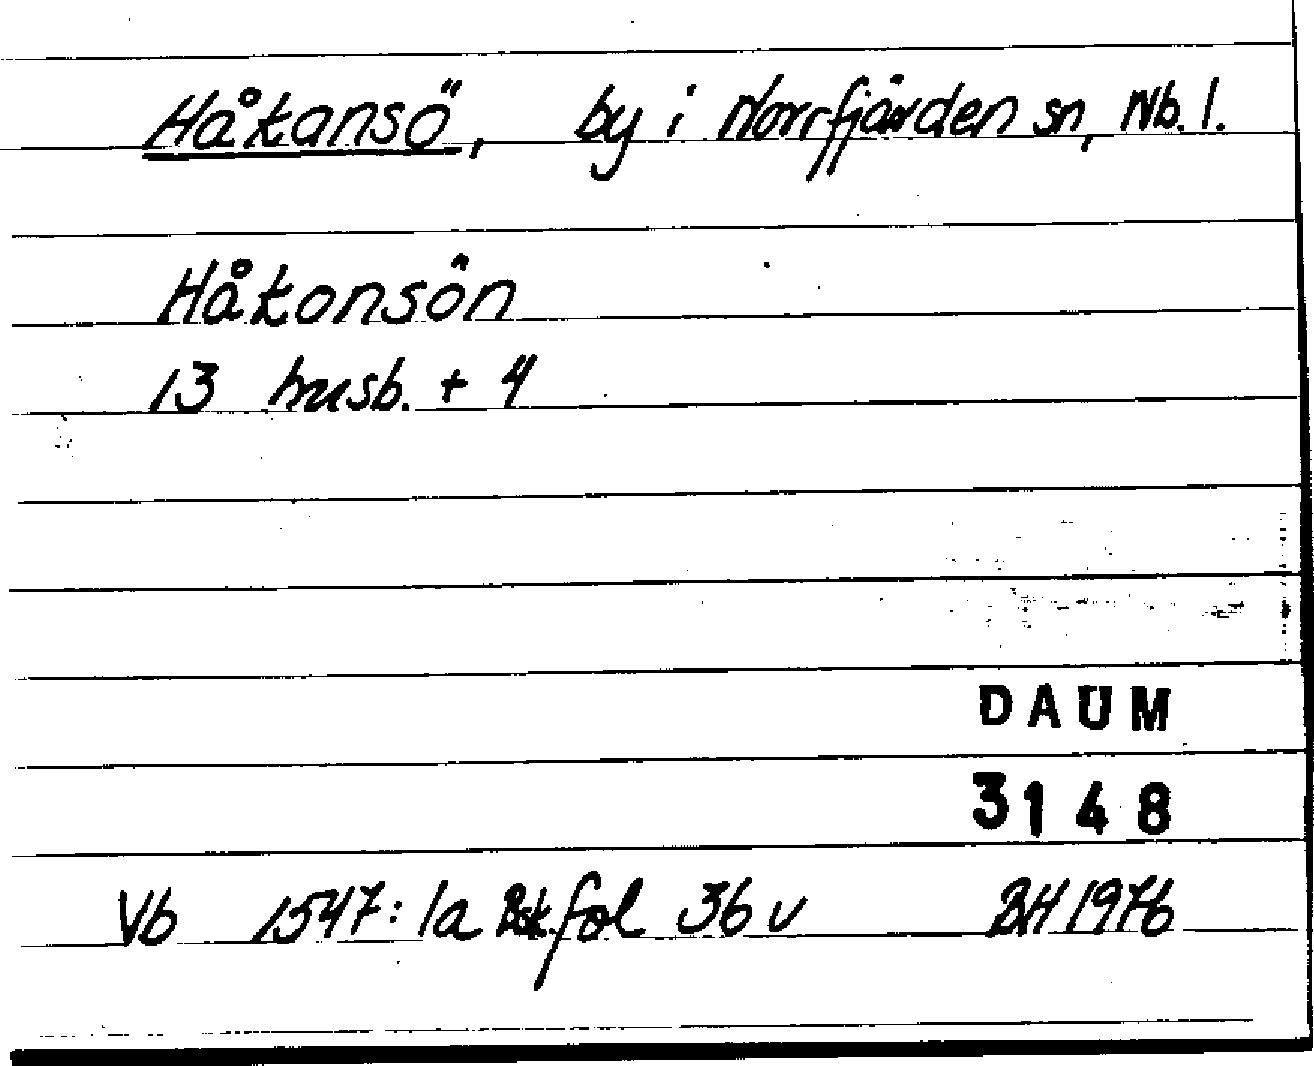 Håkansö, by i Norrfjärden sn, Nb. l.
Håkonsön
13 husb. + 4
DAUM
3148
Vb 1547: 1a Bsk. fol 36 v BH 1976